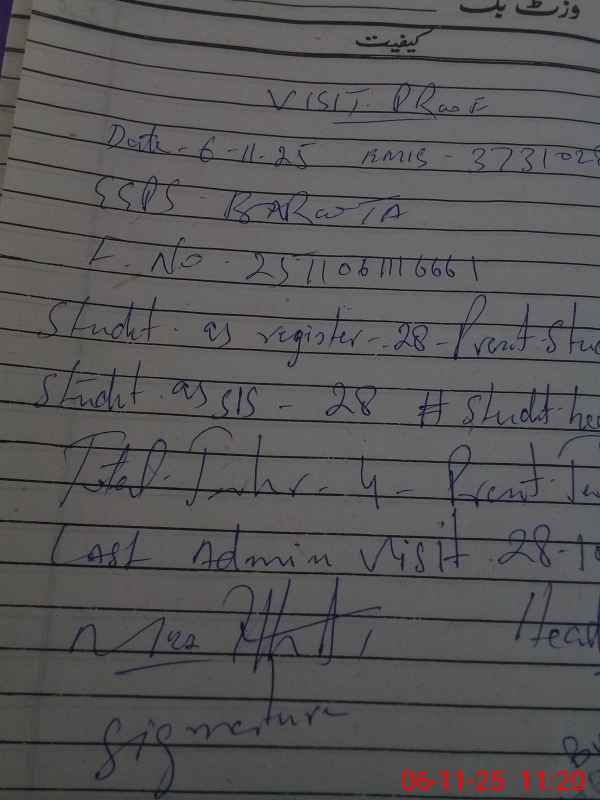 وزٹ بک
کیفیت
VISIT PRooF
Date - 6-11-25 EMIS - 3731028
GGPS BARooTA
F. No. 2511061116661
Studnt as register - 28 - Presnt Stud
Studnt as SIS - 28 # Studnt hea
Total Tehr - 4 - Presnt Te
Last Admin Visit 28-10
Head
Signature
06-11-25 11:20